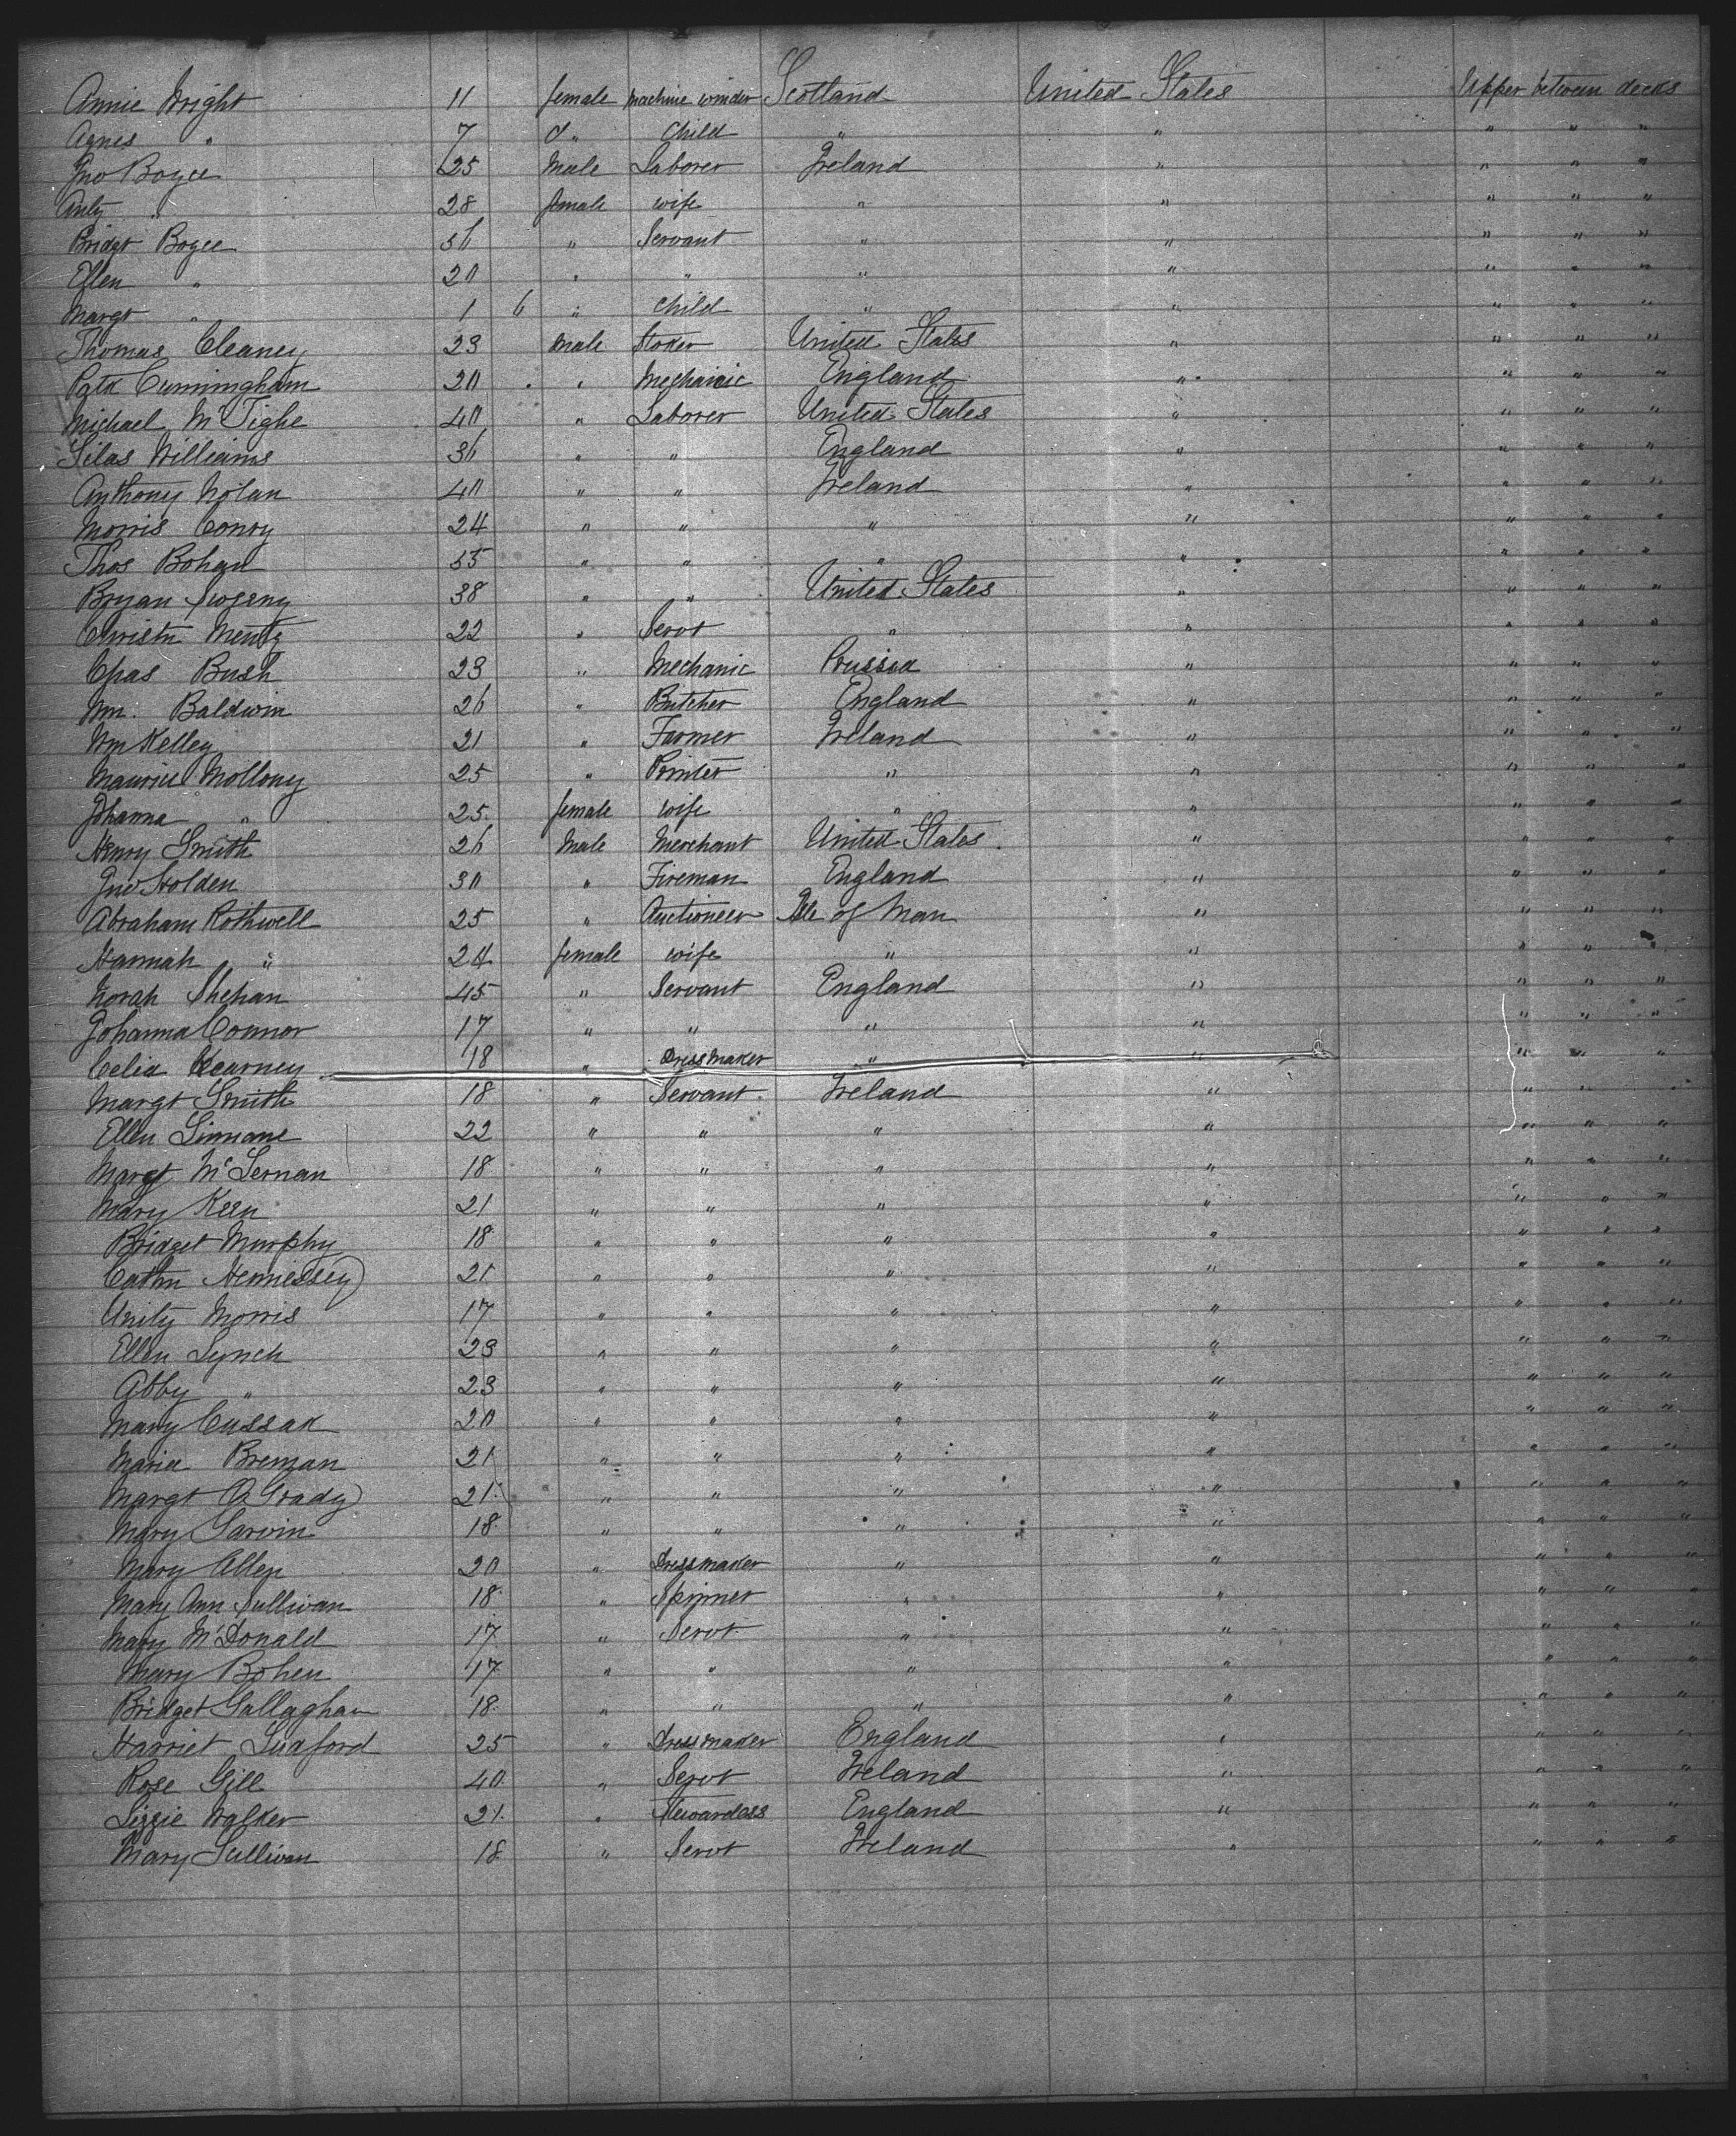 Annie Wright 11 female Machine winder Scotland United States Upper between decks
Agnes " 7 d " Child " " " " "
Jno Boyce 25 Male Laborer Ireland " " " "
Anty " 28 female wife " " " " "
Bridgt Boyce 56 " Servant " " " " "
Ellen " 20 " " " " " " "
Margt " 1 6 " Child " " " " "
Thomas Cleaney 23 Male Stoker United States " " " "
Patk Cunningham 20 " Mechanic England " " " "
Michael McTighe 40 " Laborer United States " " " "
Silas Williams 36 " " England " " " "
Anthony Nolan 40 " " Ireland " " " "
Morris Conry 24 " " " " " " "
Thos Bohan 55 " " " " " " "
Bryan Sweeny 38 " " United States " " " "
Christn Mentz 22 " Servt " " " " "
Chas Bush 23 " Mechanic Prussia " " " "
Wm. Baldwin 26 " Butcher England " " " "
Wm Kelley 21 " Farmer Ireland " " " "
Maurice Mollony 25 " Printer " " " " "
Johanna " 25 female wife " " " " "
Henry Smith 26 Male Merchant United States " " " "
Jno Holden 30 " Fireman England " " " "
Abraham Rothwell 25 " Auctioneer Isle of Man " " " "
Hannah " 24 female wife " " " " "
Norah Shehan 45 " Servant England " " " "
Johanna Connor 17 " " " " " " "
Celia Kearney 18 " Dressmaker " " " " "
Margt Smith 18 " Servant Ireland " " " "
Ellen Linnane 22 " " " " " " "
Margt McLernan 18 " " " " " " "
Mary Keen 21 " " " " " " "
Bridget Murphy 18 " " " " " " "
Cathn Hennessey 21 " " " " " " "
Unity Morris 17 " " " " " " "
Ellen Lynch 23 " " " " " " "
Abby " 23 " " " " " " "
Mary Cussak 20 " " " " " " "
Maria Brennan 21 " " " " " " "
Margt O Grady 21 " " " " " " "
Mary Garvin 18 " " " " " " "
Mary Allen 20 " Dressmaker " " " " "
Mary Ann Sullivan 18 " Spinner " " " " "
Mary McDonald 17 " Servt " " " " "
Mary Bohen 17 " " " " " " "
Bridget Gallaghan 18 " " " " " " "
Harriet Luxford 25 " Dressmaker England " " " "
Rose Gill 40 " Servt Ireland " " " "
Lizzie Walker 21 " Stewardess England " " " "
Mary Sullivan 18 " Servt Ireland " " " "